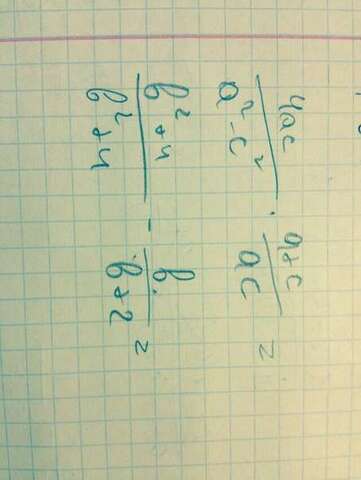 4ac/a²-c² · a+c/ac =
b²+4/b²+4 - b/b+2 =